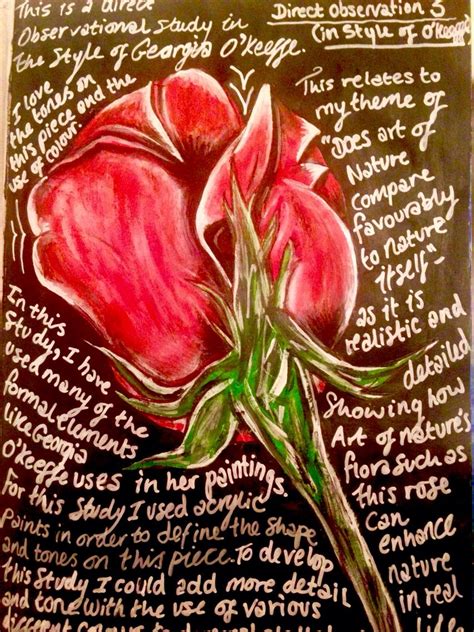 This is a direct
Observational Study in
the Style of Georgia O'Keeffe.
I love
the tones on
this piece and the
use of colour.
Direct Observation 3
(in Style of O'Keeffe)
This relates to
my theme of
"Does art of
Nature
compare
favourably
to nature
itself"-
as it is
realistic and
detailed
Showing how
Art of nature's
flora such as
this rose
Can
enhance
nature
in real
life
In this
Study, I have
used many of the
formal elements
like Georgia
O'Keeffe uses in her paintings.
For this Study I used acrylic
paints in order to define the shape
and tones on this piece. To develop
this Study I could add more detail
and tone with the use of various
different colours to